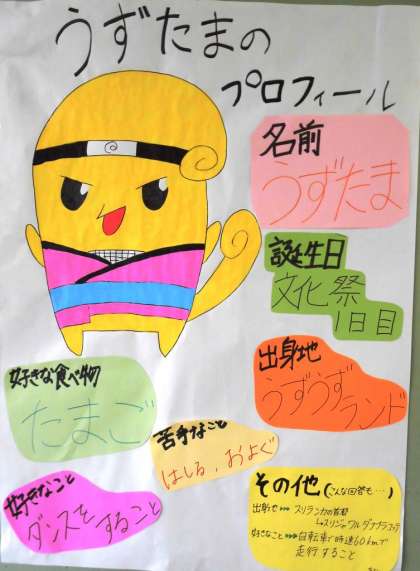 うずたまの
プロフィール
名前
うずたま
誕生日
文化祭
1日目
出身地
うずうず
ランド
好きな食べ物
たまご
苦手なこと
はしる、およぐ
好きなこと
ダンスを
すること
その他(こんな回答も…)
出身地 → スリランカの首都
↳スリジャヤワルダナプラコッテ
好きなこと → 自転車で時速60kmで
走行すること